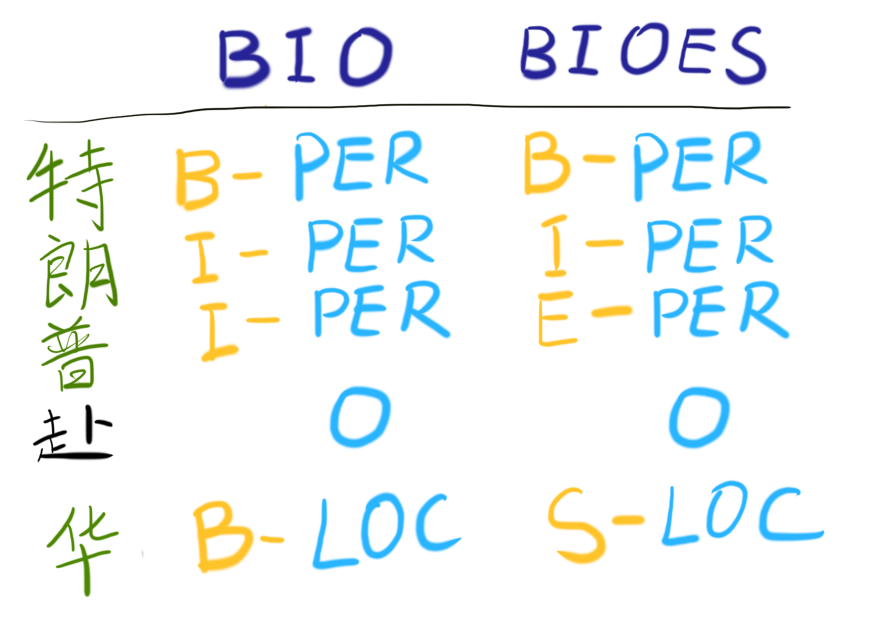 BIO BIOES
特 B-PER B-PER
朗 I-PER I-PER
普 I-PER E-PER
赴 O O
华 B-LOC S-LOC